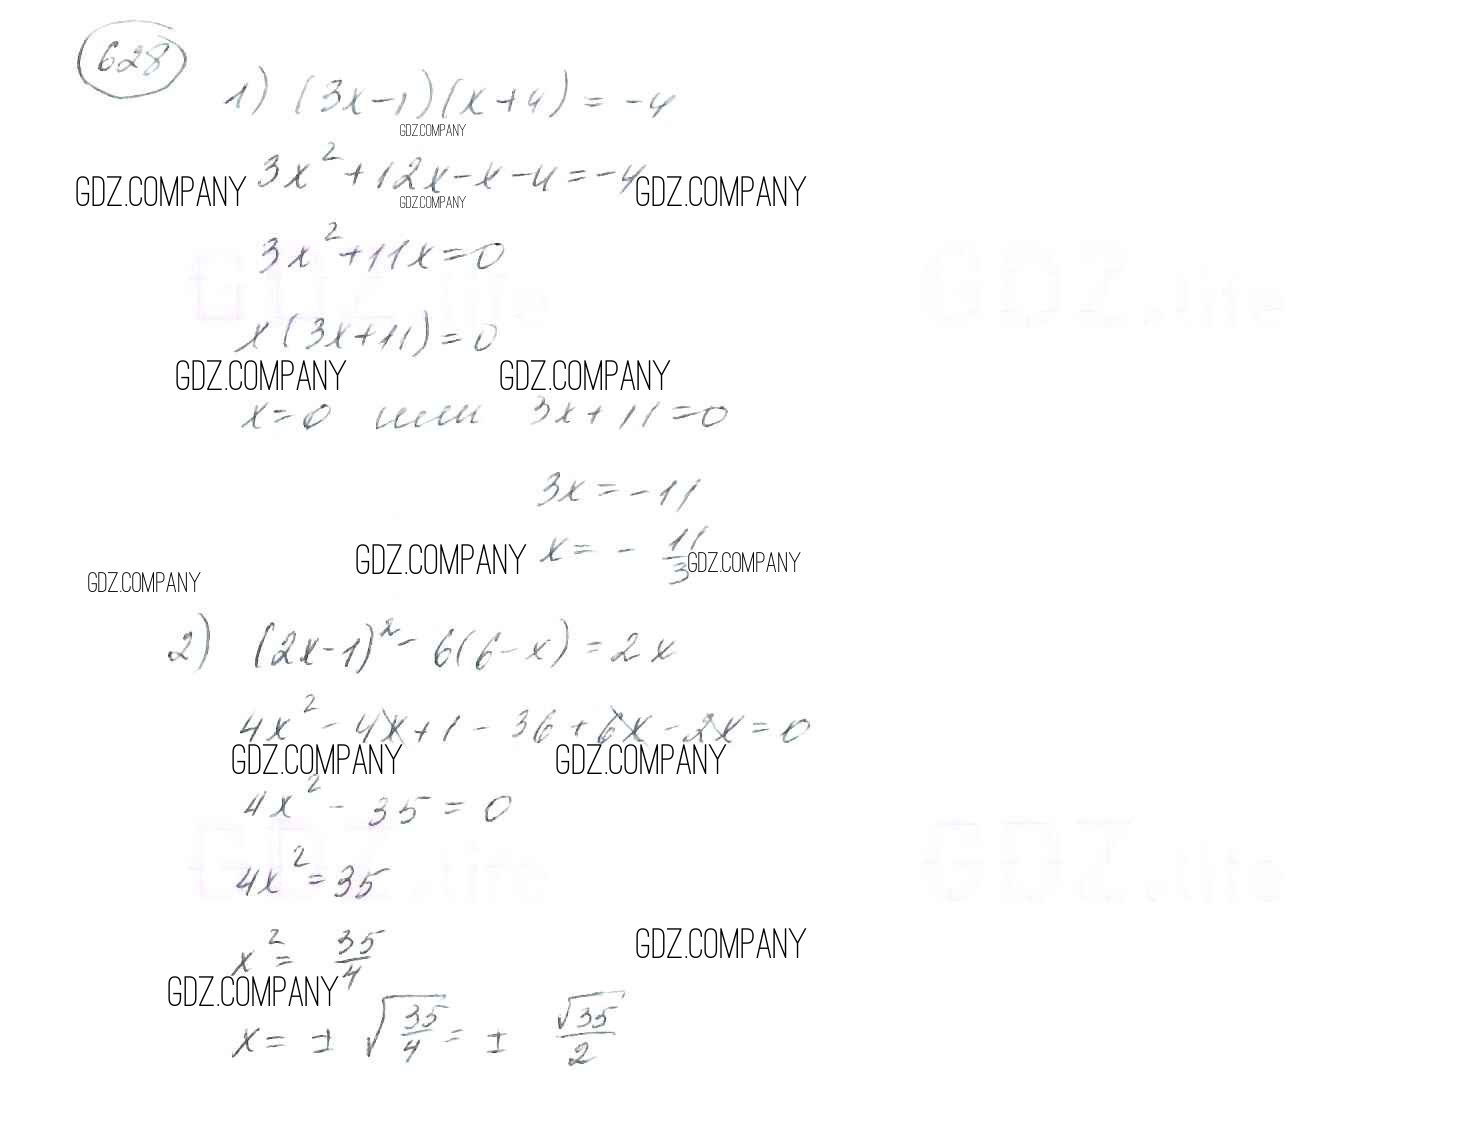 628
1) (3x-1)(x+4) = -4
GDZ.COMPANY
3x² + 12x - x - 4 = -4
GDZ.COMPANY GDZ.COMPANY
GDZ.COMPANY
3x² + 11x = 0
GDZ.life GDZ.life
x(3x+11) = 0
GDZ.COMPANY GDZ.COMPANY
x = 0 или 3x + 11 = 0
3x = -11
x = - 11/3
GDZ.COMPANY GDZ.COMPANY
GDZ.COMPANY
2) (2x-1)² - 6(6-x) = 2x
4x² - 4x + 1 - 36 + 6x - 2x = 0
GDZ.COMPANY GDZ.COMPANY
4x² - 35 = 0
GDZ.life GDZ.life
4x² = 35
x² = 35/4
GDZ.COMPANY
GDZ.COMPANY
x = ± √(35/4) = ± √35/2